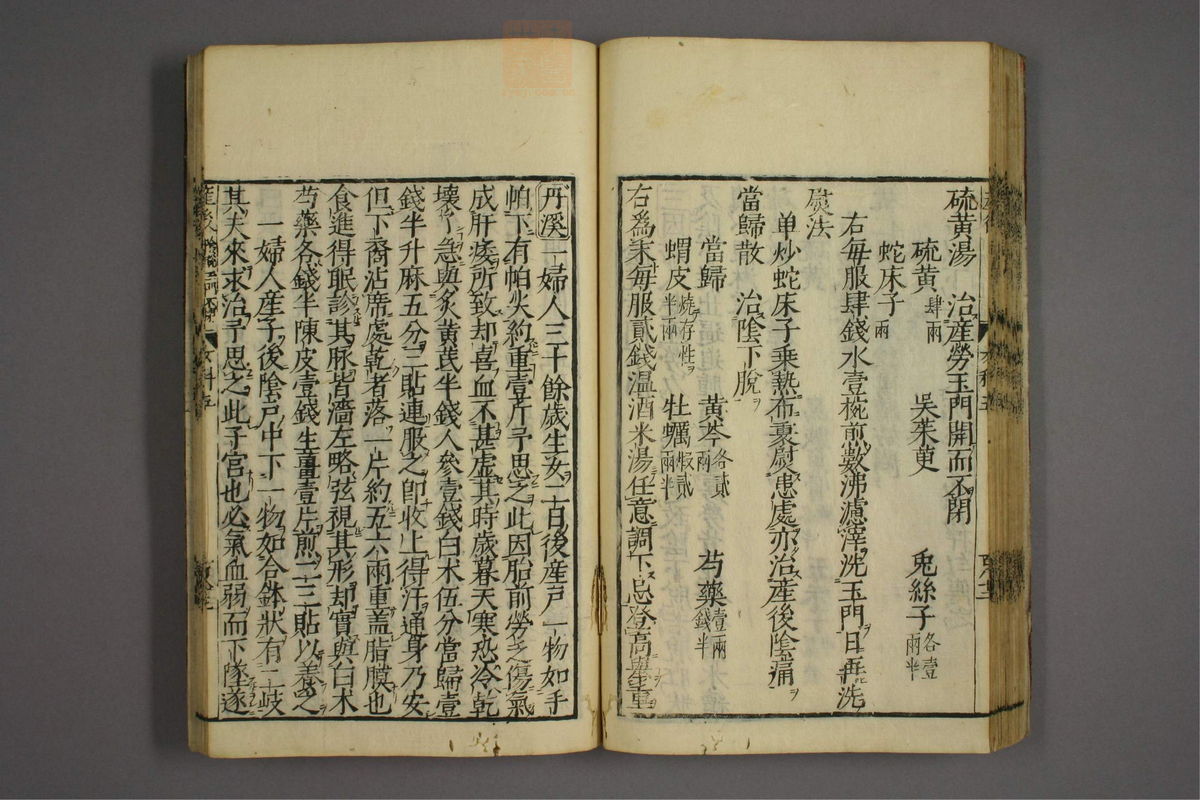 硫黄湯　治産勞玉門開而不閉
硫黄 肆兩　吳茱萸　兎絲子 各壹兩半
蛇床子 兩
右每服肆錢水壹椀煎數沸濾滓洗玉門日再洗
熨法
单炒蛇床子乘熱布裹熨患處亦治産後陰痛
當歸散　治陰下脫
當歸　黄芩 各貳兩　芍藥 壹兩錢半
蝟皮 燒存性半兩　牡蠣 煆貳兩半
右爲末每服貳錢温酒米湯任意調下忌登高舉重
丹溪一婦人三十餘歲生女二日後産戸一物如手
帕下有帕尖約重壹斤予思之此因胎前勞乏傷氣
成肝痿所致却喜血不甚虚其時歲暮天寒恐冷乾
壞了急與炙黄芪半錢人參壹錢白术伍分當歸壹
錢半升麻五分三貼連服之即收上得汗通身乃安
但下裔沾席處乾者落一片約五六兩重盖脂膜也
食進得眠診其脉皆濇左略弦視其形却實與白术
芍藥各錢半陳皮壹錢生薑壹片煎二三貼以養之
一婦人産子後陰戸中下一物如合鉢狀有二歧
其夫來求治予思之此子宮也必氣血弱而下墜遂
産後
女科五